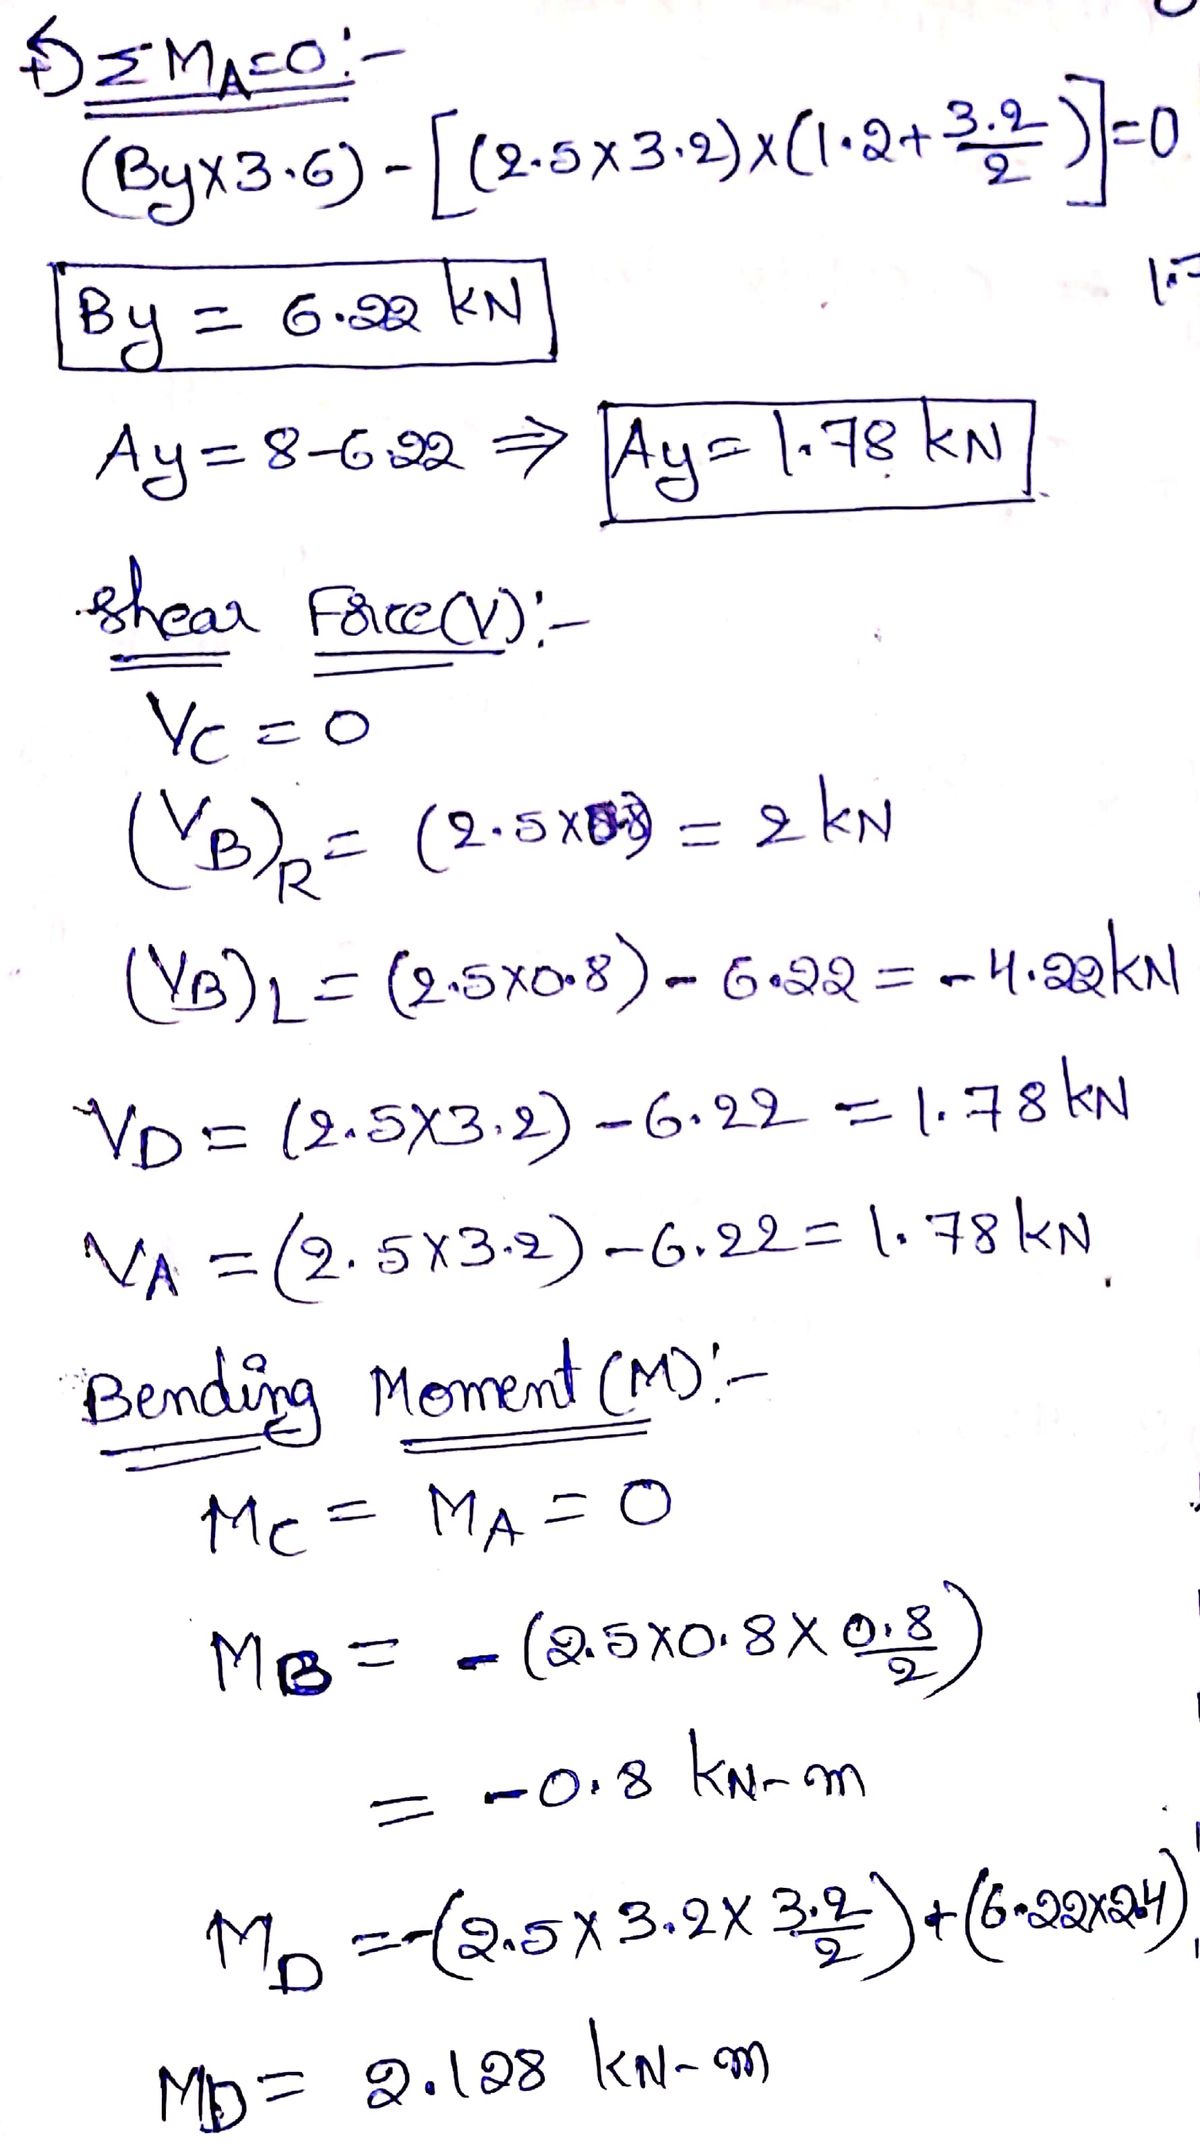 ↶+) ΣMA=0:-
(By×3.6) - [(2.5×3.2)×(1.2+3.2/2)]=0
By = 6.22 kN
Ay=8-6.22 ⇒ Ay=1.78 kN
Shear Force(V):-
VC = 0
(VB)R= (2.5×0.8) = 2 kN
(VB)L = (2.5×0.8) - 6.22 = -4.22kN
VD = (2.5×3.2) - 6.22 = 1.78 kN
VA = (2.5×3.2) - 6.22 = 1.78 kN
Bending Moment (M):-
MC = MA = 0
MB = - (2.5×0.8×0.8/2)
= -0.8 kN-m
MD =-(2.5×3.2×3.2/2)+(6.22×2.4)
MD= 2.128 kN-m